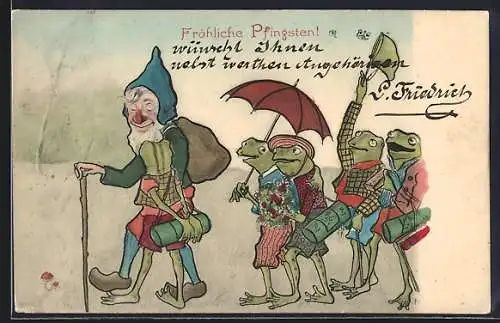 Fröhliche Pfingsten!
wünscht Ihnen
nebst werthen Angehörigen
L. Friedrich